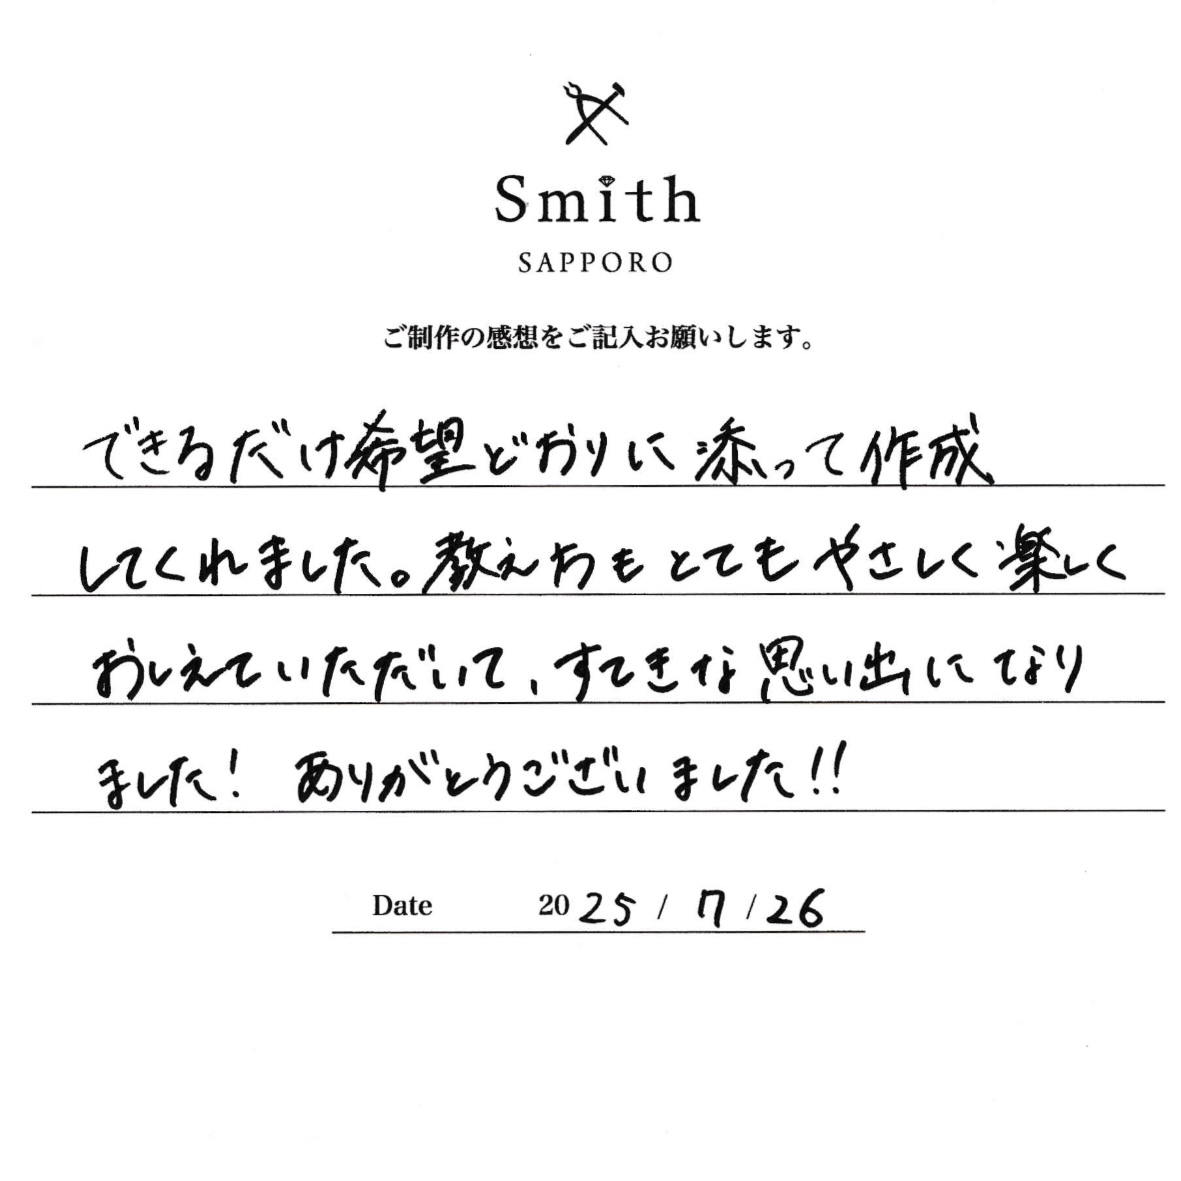 Smith
SAPPORO
ご制作の感想をご記入お願いします。
できるだけ希望どおりに添って作成
してくれました。教え方もとてもやさしく楽しく
おしえていただいて、すてきな思い出になり
ました! ありがとうございました!!
Date 2025/7/26